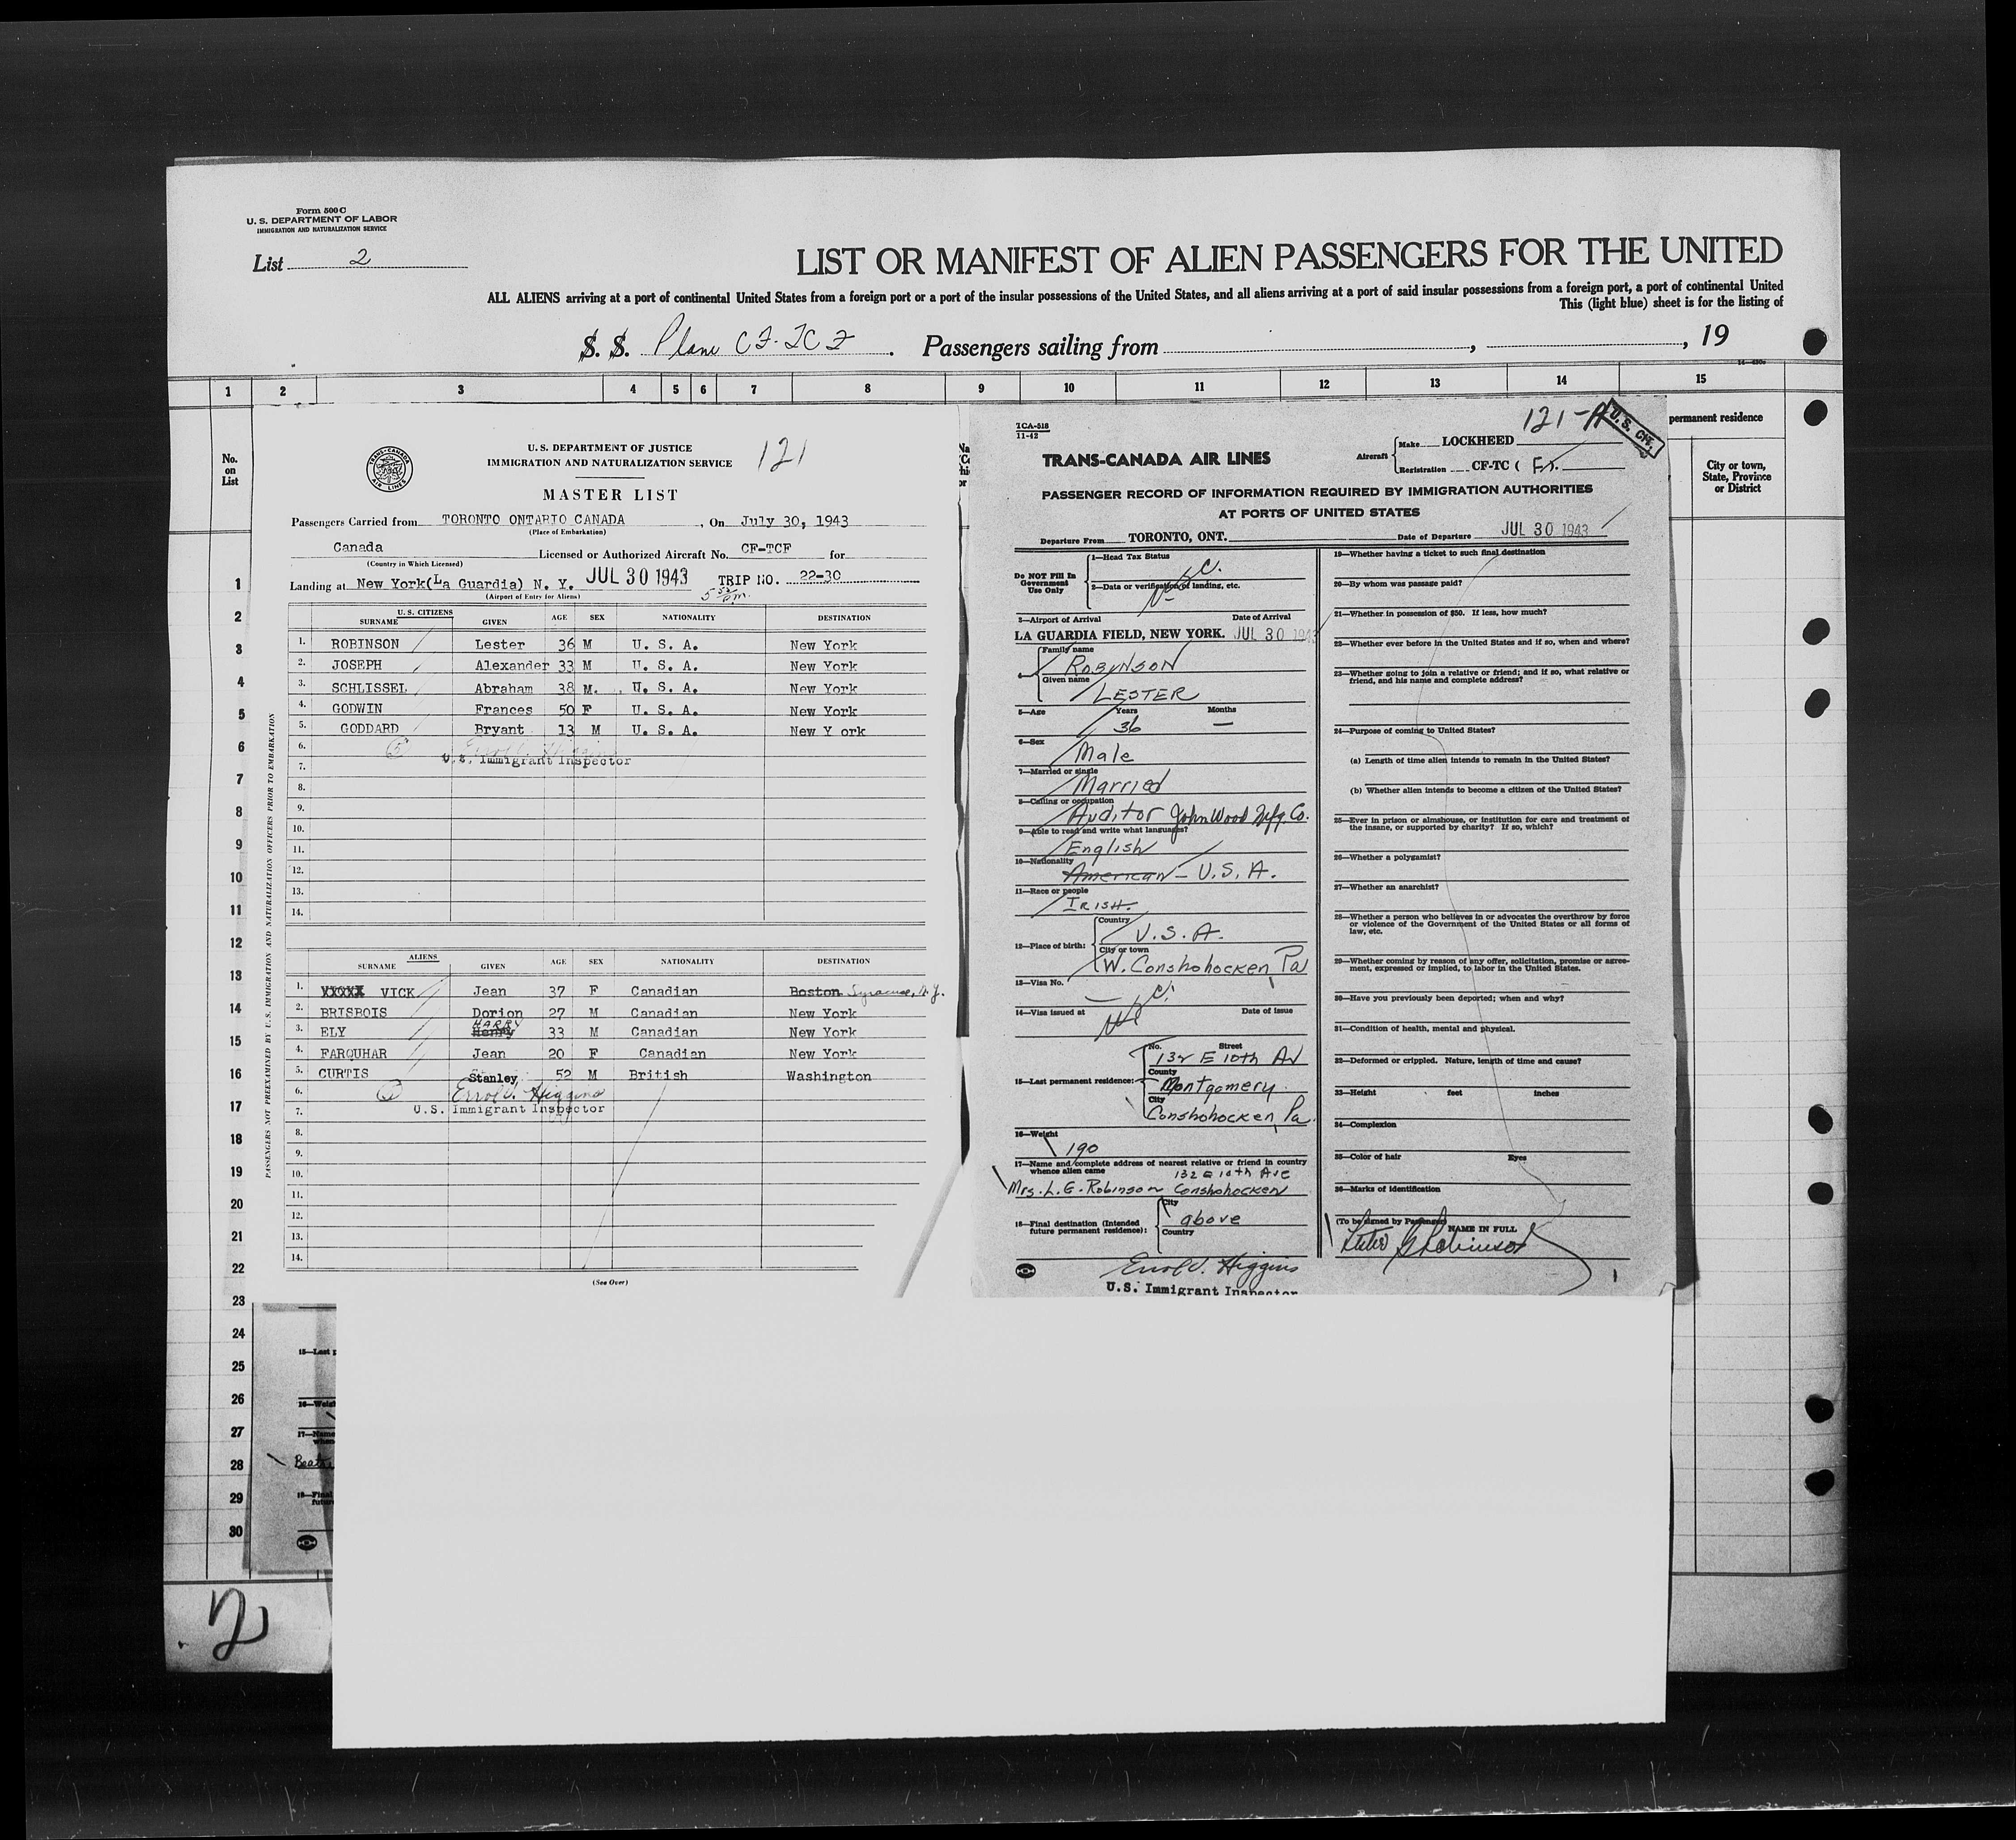 Form 500 C
U. S. DEPARTMENT OF LABOR
IMMIGRATION AND NATURALIZATION SERVICE
List 2
LIST OR MANIFEST OF ALIEN PASSENGERS FOR THE UNITED
ALL ALIENS arriving at a port of continental United States from a foreign port or a port of the insular possessions of the United States, and all aliens arriving at a port of said insular possessions from a foreign port, a port of continental United
This (light blue) sheet is for the listing of
S. S. Plane CF-TCF. Passengers sailing from , , 19
1 2 3 4 5 6 7 8 9 10 11 12 13 14 15
No. on List
permanent residence
City or town, State, Province or District
1
2
3
4
5
6
7
8
9
10
11
12
13
14
15
16
17
18
19
20
21
22
23
24
25
26
27
28
29
30
PASSENGERS NOT PREEXAMINED BY U.S. IMMIGRATION AND NATURALIZATION OFFICERS PRIOR TO EMBARKATION
TRANS-CANADA AIR LINES
U. S. DEPARTMENT OF JUSTICE
IMMIGRATION AND NATURALIZATION SERVICE
121
MASTER LIST
Passengers Carried from TORONTO ONTARIO CANADA, On July 30, 1943
(Place of Embarkation)
Canada Licensed or Authorized Aircraft No. CF-TCF for
(Country in Which Licensed)
Landing at New York(La Guardia) N. Y. JUL 30 1943 TRIP NO. 22-30
(Airport of Entry for Aliens)
U. S. CITIZENS
SURNAME GIVEN AGE SEX NATIONALITY DESTINATION
1. ROBINSON Lester 36 M U. S. A. New York
2. JOSEPH Alexander 33 M U. S. A. New York
3. SCHLISSEL Abraham 38 M. U. S. A. New York
4. GODWIN Frances 50 F U. S. A. New York
5. GODDARD Bryant 13 M U. S. A. New Y ork
6. 5 Errol V. Higgins
7. U.S. Immigrant Inspector
8.
9.
10.
11.
12.
13.
14.
ALIENS
SURNAME GIVEN AGE SEX NATIONALITY DESTINATION
1. XXXXX VICK Jean 37 F Canadian Boston Syracuse, N.Y.
2. BRISBOIS Dorion 27 M Canadian New York
3. ELY Henry HARRY 33 M Canadian New York
4. FARQUHAR Jean 20 F Canadian New York
5. CURTIS Stanley 52 M British Washington
6. Errol V. Higgins
7. U.S. Immigrant Inspector
8.
9.
10.
11.
12.
13.
14.
(See Over)
TCA-518
11-42
121-A
U. S. CIT.
TRANS-CANADA AIR LINES
Aircraft Make LOCKHEED
Registration CF-TC ( F ).
PASSENGER RECORD OF INFORMATION REQUIRED BY IMMIGRATION AUTHORITIES
AT PORTS OF UNITED STATES
Departure From TORONTO, ONT. Date of Departure JUL 30 1943
Do NOT Fill In Government Use Only
1—Head Tax Status
2—Data or verification of landing, etc.
3—Airport of Arrival Date of Arrival
LA GUARDIA FIELD, NEW YORK. JUL 30 1943
4— Family name ROBINSON
Given name LESTER
5—Age Years 36 Months —
6—Sex Male
7—Married or single Married
8—Calling or occupation Auditor John Wood Mfg. Co.
9—Able to read and write what languages? English
10—Nationality American - U.S.A.
11—Race or people IRISH
12—Place of birth: Country U.S.A.
City or town W. Conshohocken, Pa
13—Visa No.
14—Visa issued at Date of issue
15—Last permanent residence: No. Street 132 E 10th Av
County Montgomery
City Conshohocken, Pa.
16—Weight 190
17—Name and complete address of nearest relative or friend in country whence alien came 132 E 10th Ave
Mrs. L. G. Robinson Conshohocken
18—Final destination (Intended future permanent residence): City above
Country
Errol V. Higgins
U.S. Immigrant Inspector
19—Whether having a ticket to such final destination
20—By whom was passage paid?
21—Whether in possession of $50. If less, how much?
22—Whether ever before in the United States and if so, when and where?
23—Whether going to join a relative or friend; and if so, what relative or friend, and his name and complete address?
24—Purpose of coming to United States?
(a) Length of time alien intends to remain in the United States?
(b) Whether alien intends to become a citizen of the United States?
25—Ever in prison or almshouse, or institution for care and treatment of the insane, or supported by charity? If so, which?
26—Whether a polygamist?
27—Whether an anarchist?
28—Whether a person who believes in or advocates the overthrow by force or violence of the Government of the United States or all forms of law, etc.
29—Whether coming by reason of any offer, solicitation, promise or agreement, expressed or implied, to labor in the United States.
30—Have you previously been deported; when and why?
31—Condition of health, mental and physical.
32—Deformed or crippled. Nature, length of time and cause?
33—Height feet inches
34—Complexion
35—Color of hair Eyes
36—Marks of identification
(To be signed by Passenger) NAME IN FULL
Lester G Robinson
2